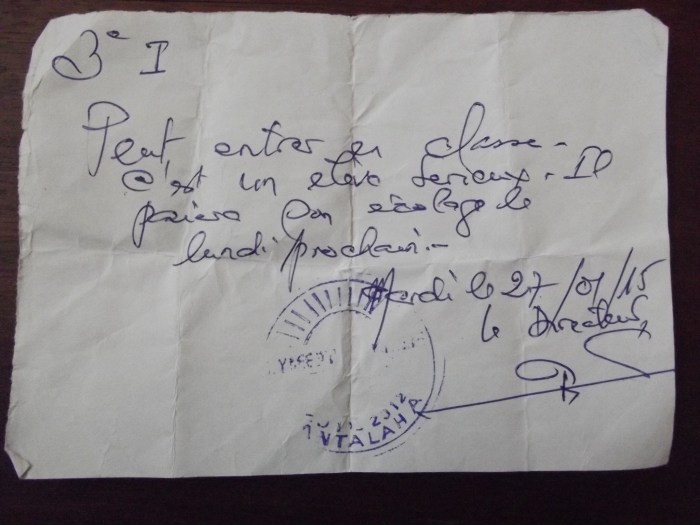 3e I
Peut entrer en classe -
c'est un élève sérieux - Il
paiera son écolage le
lundi prochain -
Mardi le 27/01/15
Le Directeur,
2012
NTALAHA